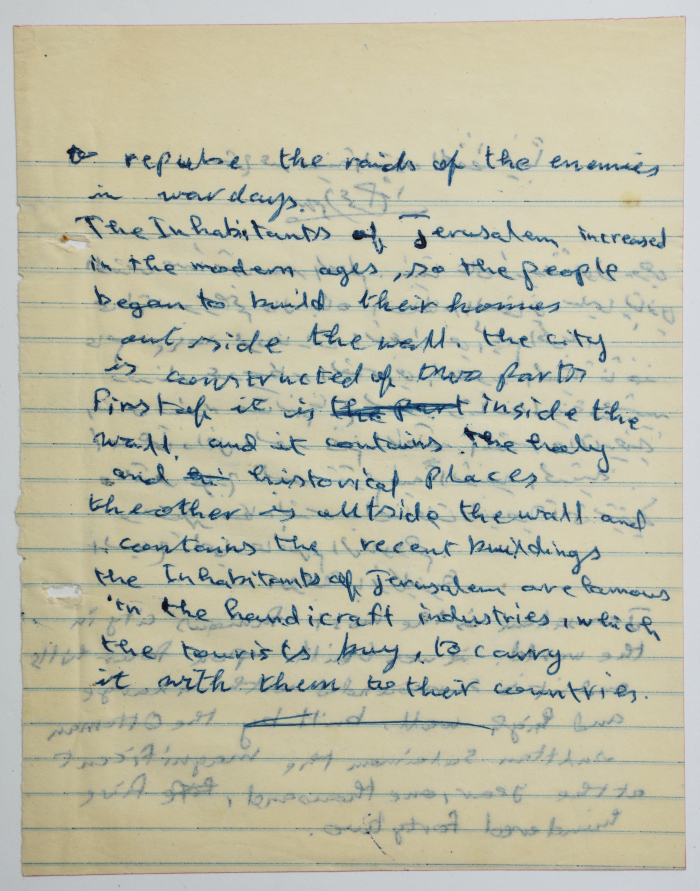 to repulse the raids of the enemies
in war days.
The Inhabitants of Jerusalem increased
in the modern ages, so the people
began to build their homes
out side the wall. the city
is constructed of two parts
first of it is the part inside the
wall, and it contains the holy
and historical places
the other is outside the wall and
contains the recent buildings
the Inhabitants of Jerusalem are famous
in the handicraft industries, which
the tourists buy, to carry
it with them to their countries.